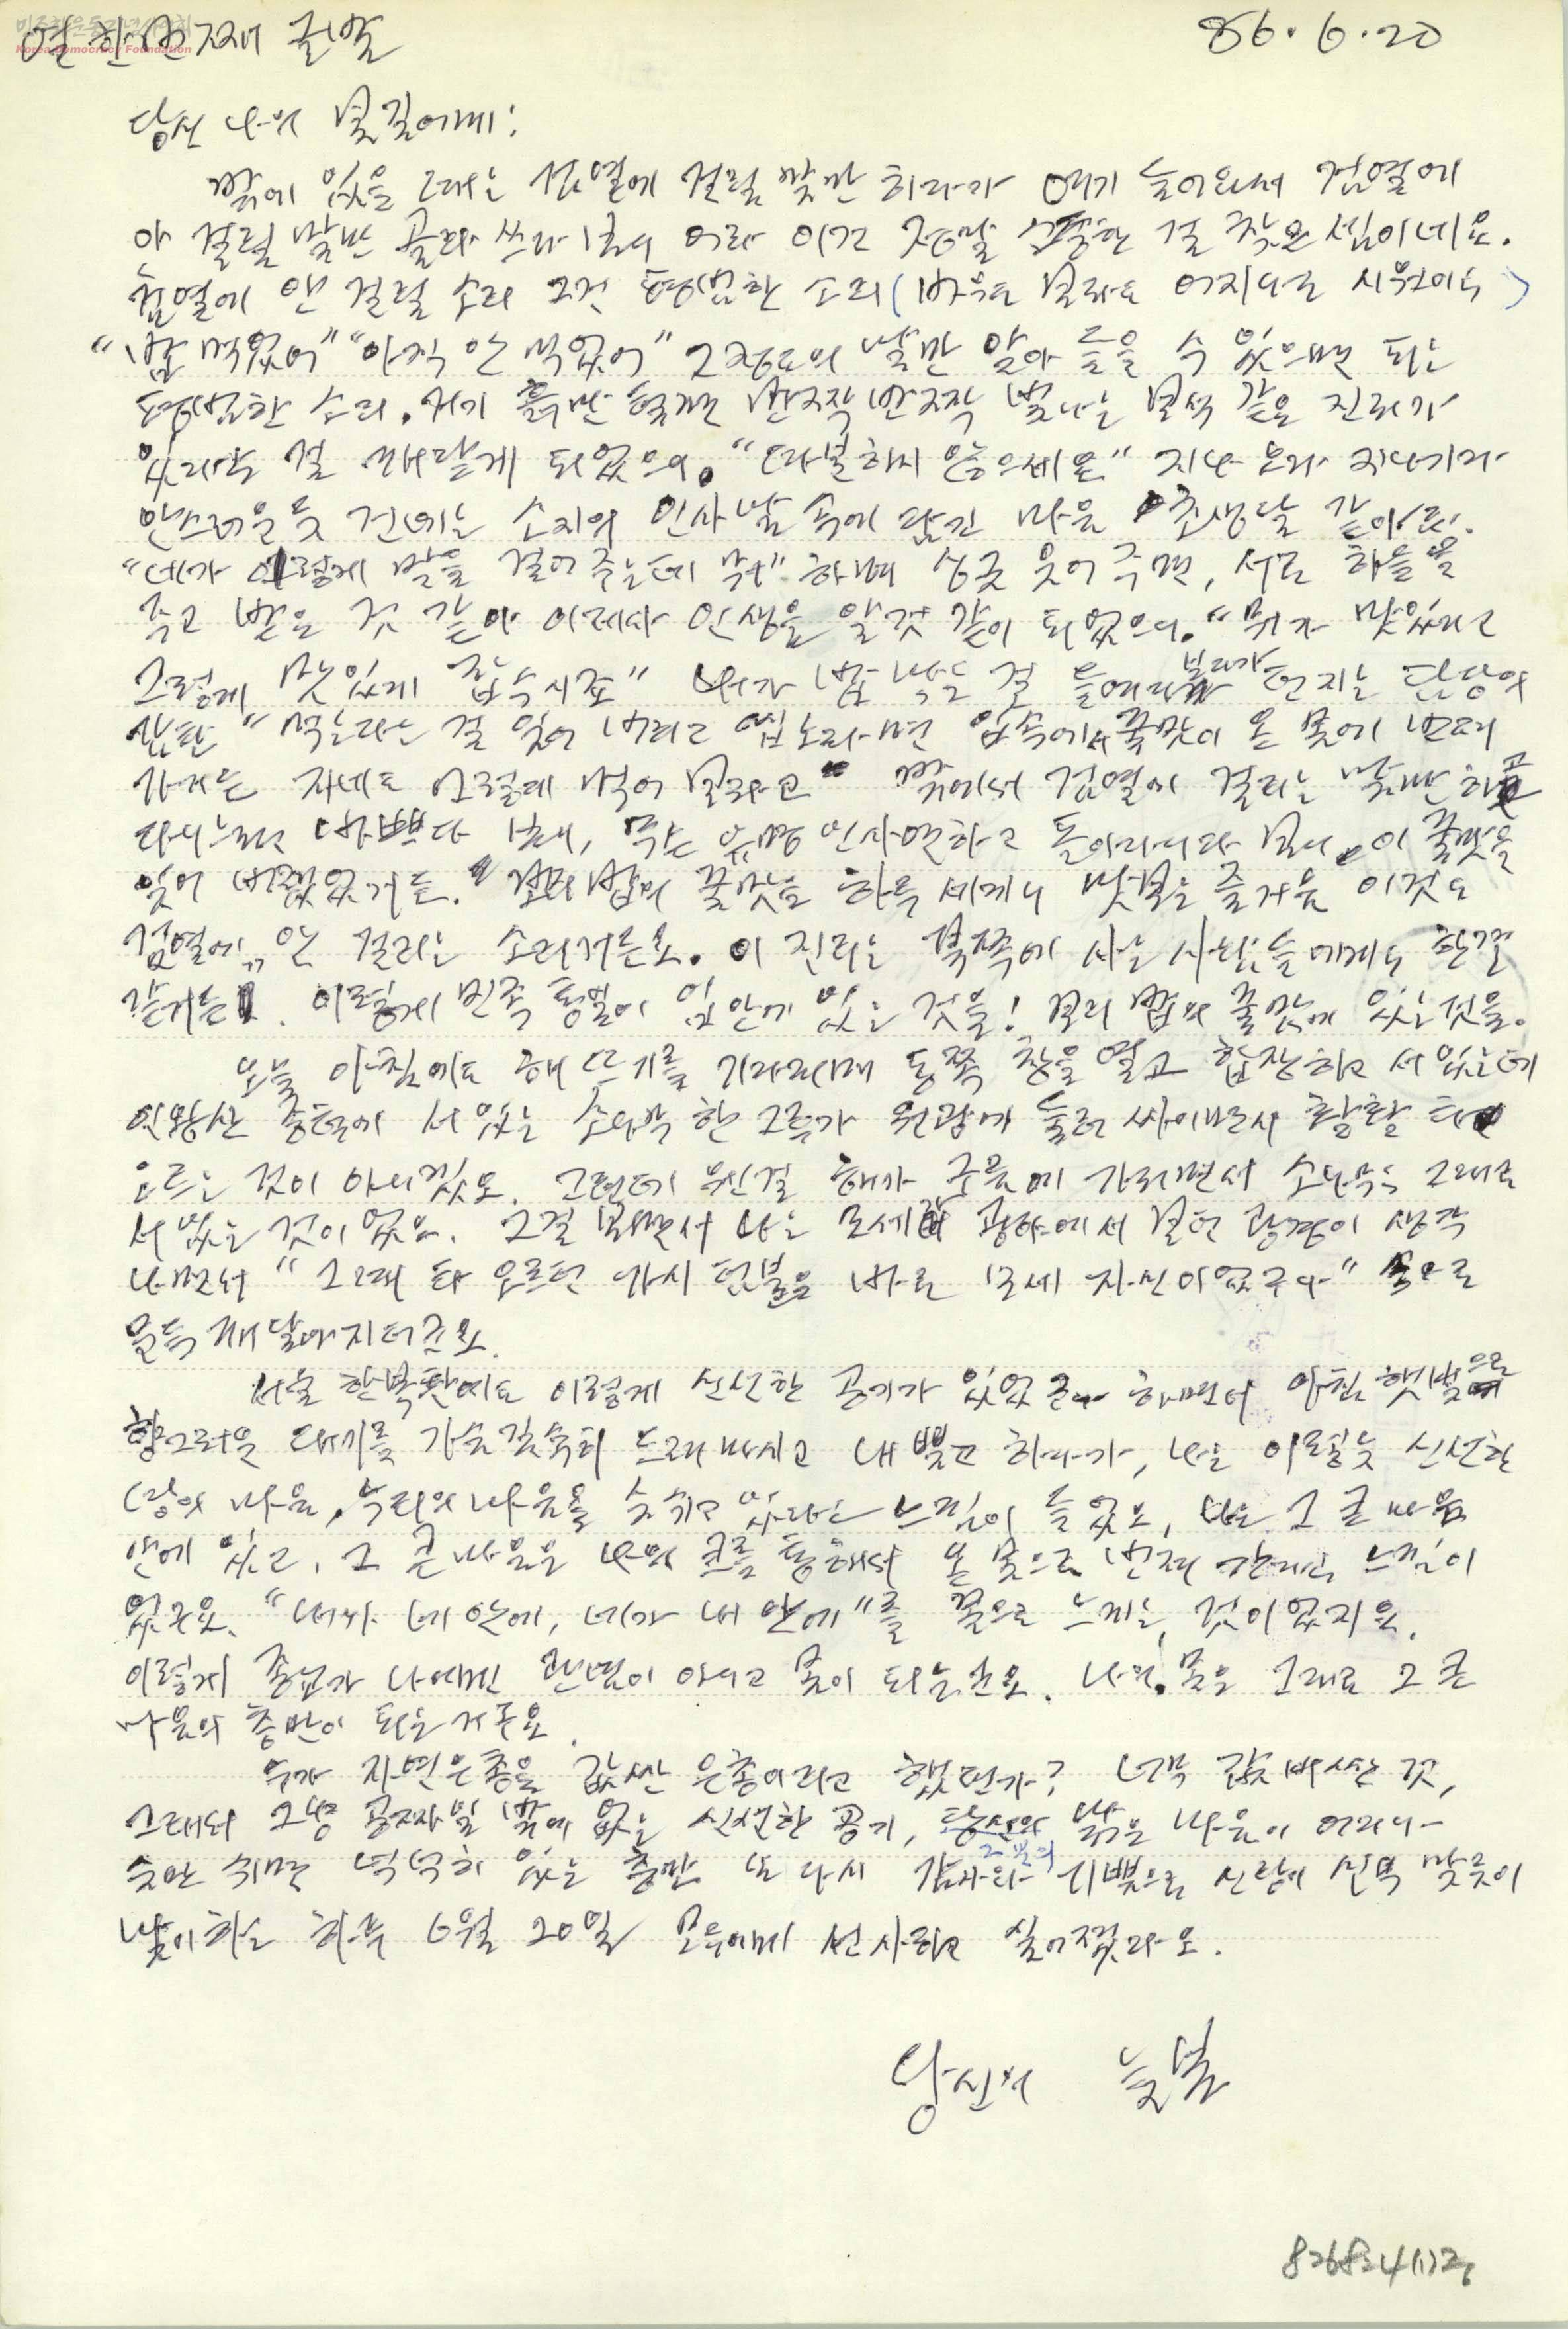 열한번째 글월
86.6.20
민주화운동기념사업회
Korea Democracy Foundation
당신 나의 봄길에게:
밖에 있을 때는 검열에 걸릴 말만 하다가 여기 들어와서 검열에
안 걸릴 말만 골라 쓰다 보니 이건 정말 소중한 걸 찾은 셈이네요.
검열에 안 걸릴 소리 그건 평범한 소리(바우도 보라도 어지니도 시원이도)
"밥 먹었어" "아직 안 먹었어" 그 정도의 말만 알아 들을 수 있으면 되는
평범한 소리. 거기 흙만 털면 반짝 반짝 빛나는 보석 같은 진리가
있다는 걸 깨닫게 되었으니. "답답하시 않으세요" 지나 오다 지나가다
안스러운 듯 건네는 소지의 인사말 속에 담긴 마음 초생달 같아요.
"네가 이렇게 말을 걸어 주는데 뭐" 하며 싱긋 웃어 주면, 서로 하늘을
주고 받은 것 같아 이제사 인생을 알 것 같이 되었으니. "뭐가 맛있다고
그렇게 맛있게 잡수시죠" 내가 밥 먹는 걸 들여다보다가 던지는 담당의
말은 "먹는다는 걸 잊어 버리고 씹노라면 입속에서 꿀맛이 온 몸에 번져
가거든 자네도 그렇게 먹어 보라고" 밖에서 검열에 걸리는 말만 하고
다니느라고 바쁘다 보니, 무슨 유명 인사연하고 돌아다니다 보니 이 꿀맛을
잊어 버렸었거든. 보리밥의 꿀맛을 하루 세끼니 맛보는 즐거움 이것도
검열에 안 걸리는 소리거든요. 이 진리는 북쪽에 사는 사람들에게도 한결
같거든. 이렇게 민족 통일이 입 안에 있는 것을! 보리 밥의 꿀맛에 있는 것을.
오늘 아침에도 해 뜨기를 기다리며 동쪽 창을 열고 합장하고 서 있는데
인왕산 중턱에 서 있는 소나무 한 그루가 원광에 둘러 싸이면서 활활 타
오르는 것이 아니겠소. 그런데 웬걸 해가 구름에 가리면서 소나무는 그대로
서 있는 것이었소. 그걸 보면서 나는 모세가 광야에서 보던 광경이 생각
나면서 "그때 타 오르던 가시 덤불은 바로 모세 자신이었구나" 속으로
문득 깨달아지더군요.
서울 한복판에도 이렇게 신선한 공기가 있었군 하면서 아침 햇빛으로
향그러운 대기를 가슴 깊숙히 들여 마시고 내 뿜고 하다가, 나는 이렇듯 신선한
당의 마음, 우리의 마음을 숨쉬고 있다는 느낌이 들었소, 나는 그 큰 마음
안에 있고, 그 큰 마음은 나의 코를 통해서 온 몸으로 번져 간다는 느낌이
었구요. "내가 네 안에, 네가 내 안에"를 몸으로 느끼는 것이었지요.
이렇게 종교가 나에겐 관념이 아니고 몸이 되는군요. 나의 몸은 그대로 그 큰
마음의 충만이 되는 거구요.
누가 자연은총을 값싼 은총이라고 했던가? 너무 값 비싼 것,
그래서 그냥 공짜일 밖에 없는 신선한 공기, 당신의 맑은 마음이 어리니
숨만 쉬면 넉넉히 있는 충만 또 다시 감사와 그 분의 기쁨으로 신랑이 신부 맞듯이
맞이하는 하루 6월 20일 모두에게 선사하고 싶어졌다오.
당신의 늦봄
826824(1)2,